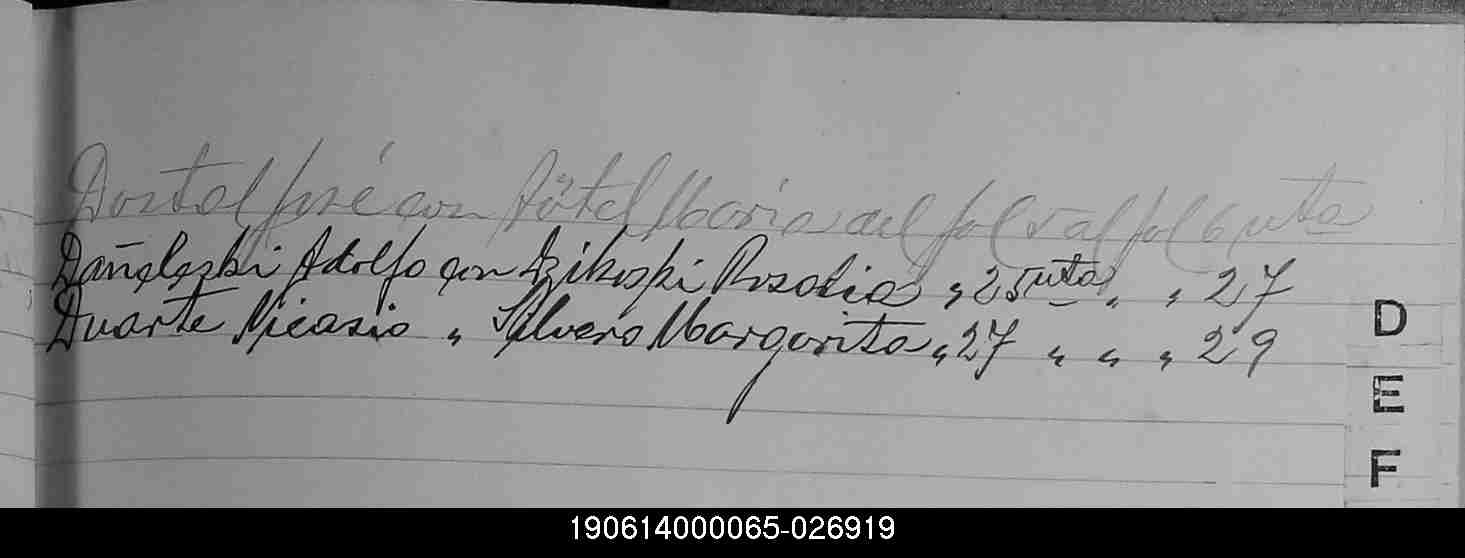 Dostal José con Hötel Maria del fol 5 al fol 6 vta
Dañeleski Adolfo con Dzikoski Rosalia „ 25 vta „ „ 27
Duarte Nicasio „ Silvero Margarita „ 27 „ „ „ 29
D
E
F
190614000065-026919